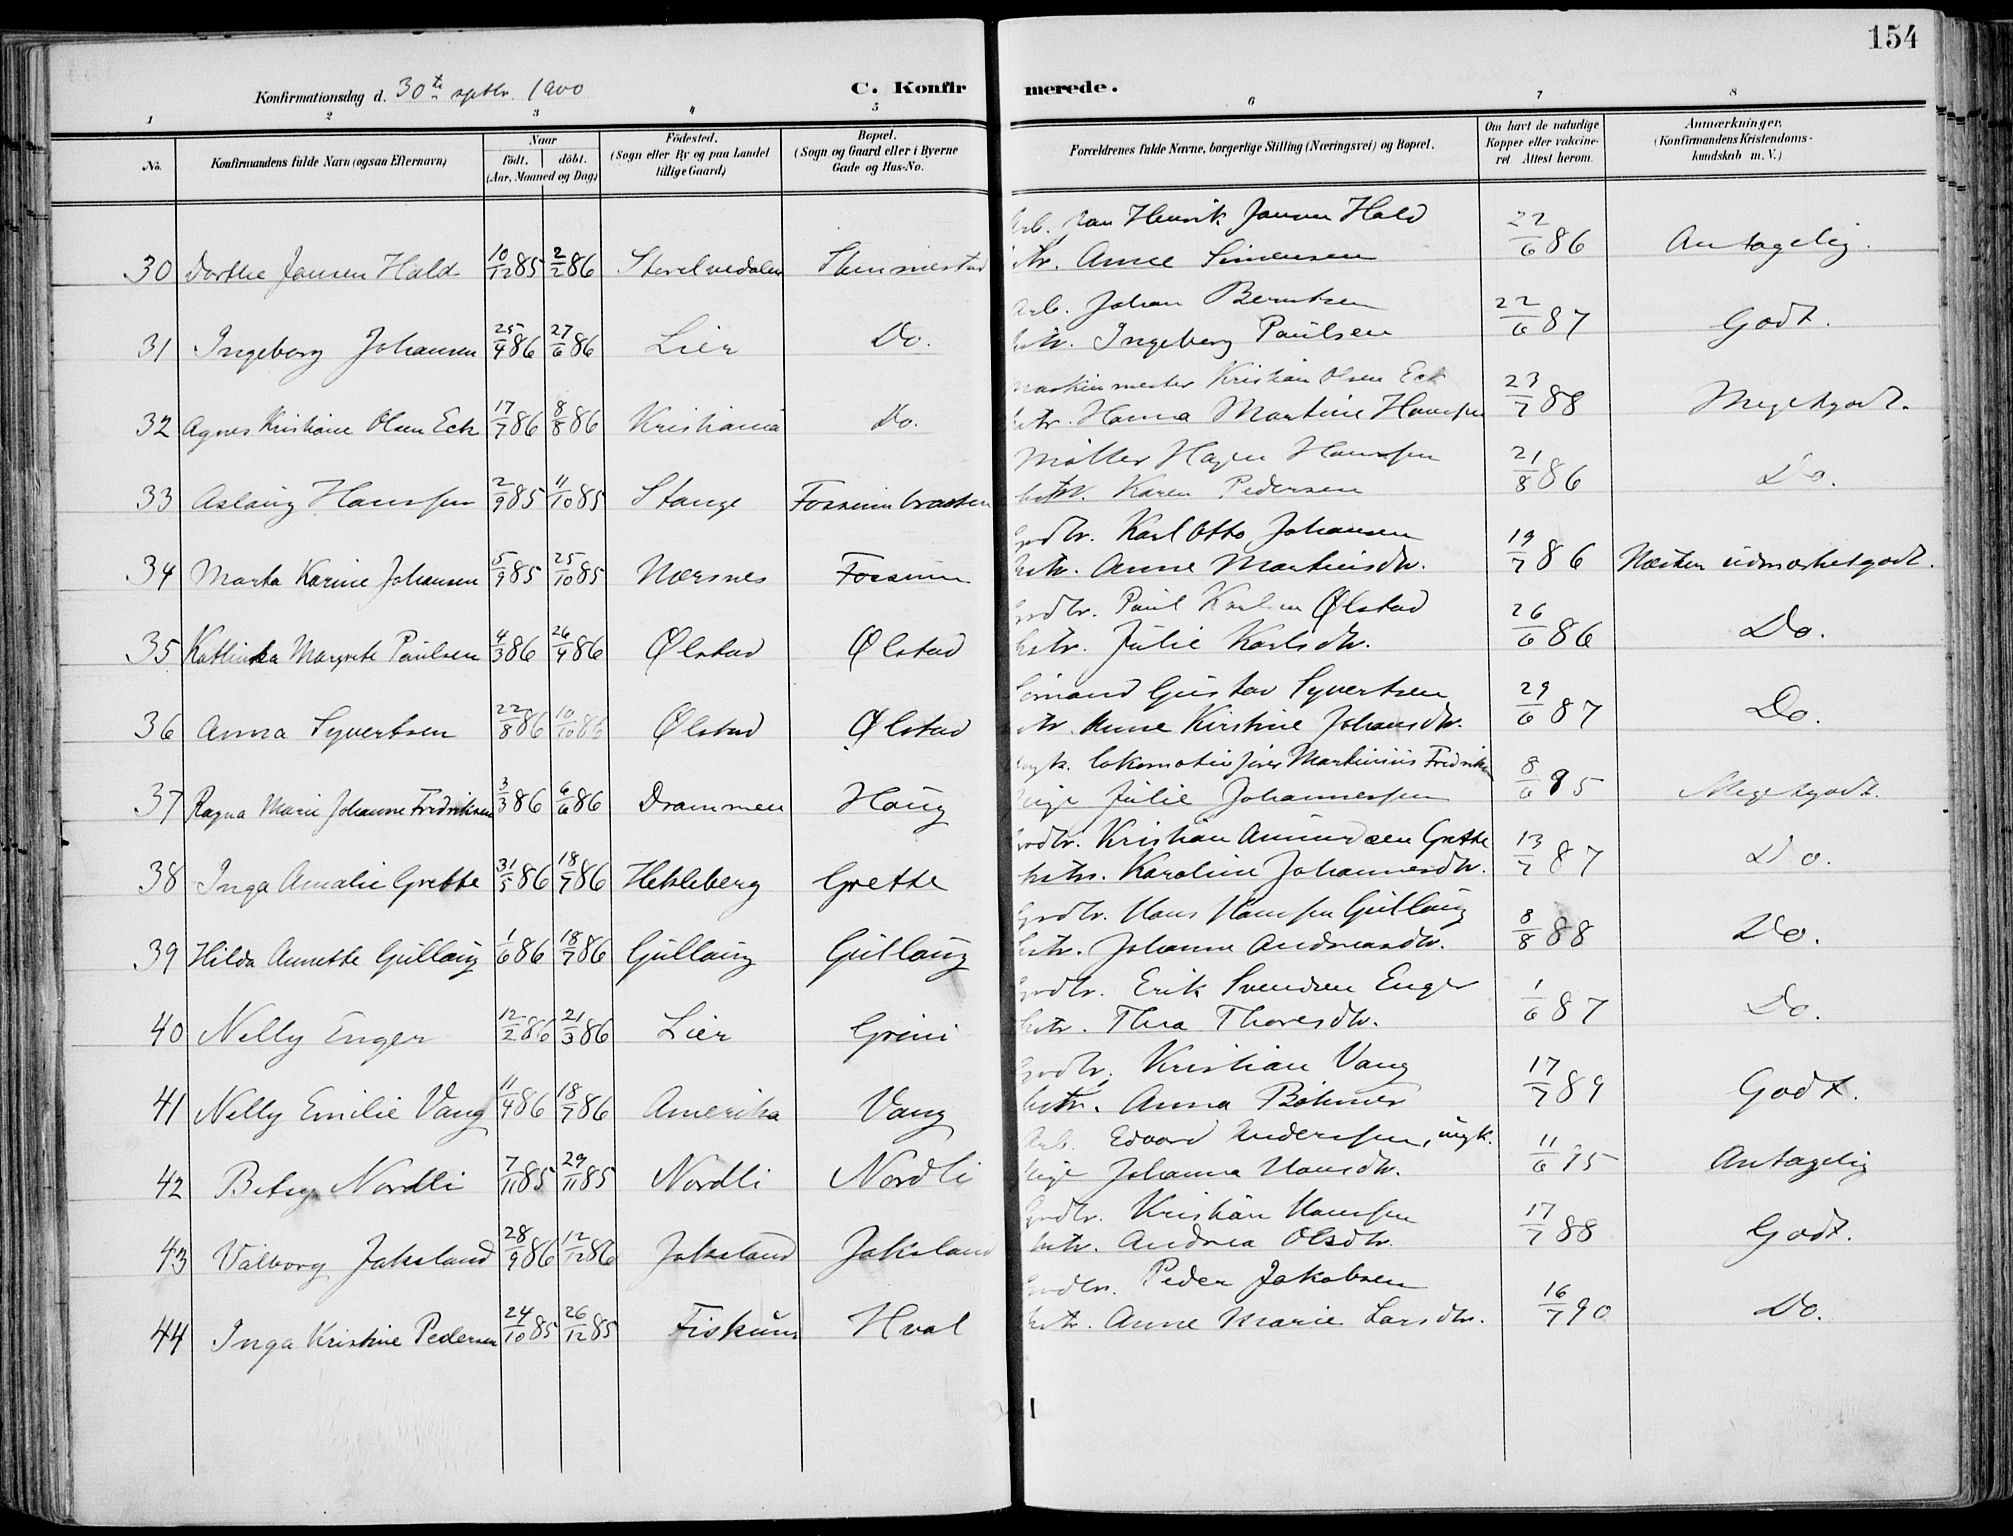 154
Konfirmationsdag d. 30te septbr. 1900
C. Konfirmerede.
1 2 3 4 5 6 7 8
No.
Konfirmandens fulde Navn (ogsaa Efternavn)
Naar
födt. döbt.
(Aar, Maaned og Dag)
Födested.
(Sogn eller By og paa Landet
tillige Gaard)
Bopæl.
(Sogn og Gaard eller i Byerne
Gade og Hus-No.
Forældrenes fulde Navne, borgerlige Stilling (Næringsvei) og Bopæl.
Om havt de naturlige
Kopper eller vakcine-
ret Attest herom.
Anmærkninger.
(Konfirmandens Kristendoms-
kundskab m. V.)
Arb. Jan Henrik Jansen Hald
30 Dorthe Jansen Hald 10/12 85 2/2 86 Slemmestad Anne Simensen 22/6 86 Antagelig.
Arb. Johan Berntsen
31 Ingeborg Johansen 25/4 86 27/6 86 Lier Do. hstr. Ingeborg Paulsen 22/6 87 Godt.
Maskinmester Kristian Olsen Eck
32 Agnes Kristiane Olsen Eck 17/7 86 8/8 86 Kristiania Do. hstr. Hanna Martine Hanssen 23/7 88 Megetgodt.
Möller Hagen Hanssen
33 Aslaug Hanssen 2/9 85 11/10 85 Stange hstr. Karen Pedersen 21/8 86 Do.
Grdbr. Karl Otto Johansen
34 Marta Karine Johansen 5/9 85 25/10 85 Nærsnes Fossum hstr. Anne Martinsdtr. 19/7 86 Næsten udmærketgodt.
Grdbr. Paul Karlsen Ølstad
35 Kathinka Margrete Paulsen 4/3 86 26/4 86 Ølstad Ølstad hstr. Julie Karlsdtr. 26/6 86 Do.
Gustav Syvertsen
36 Anna Syvertsen 22/8 86 10/10 86 Ølstad Ølstad hstr. Anne Kirstine Johansdtr. 29/6 87 Do.
Ungk. lokomotivfører Martinius Fredriksen
37 Ragna Marie Johanne Fredriksen 3/3 86 6/6 86 Drammen Haug Pige Julie Johannessen 8/6 95 Megetgodt.
Grdbr. Kristian Amundsen Grette
38 Inga Amalie Grette 31/5 86 18/7 86 Hekleberg Grette hstr. Karoline Johannesdtr. 13/7 87 Do.
Grdbr. Hans Hanssen Gullaug
39 Hilda Annette Gullaug 1/6 86 18/7 86 Gullaug Gullaug hstr. Johanne Andreasdtr. 8/8 88 Do.
Grdbr. Erik Svendsen Enger
40 Nelly Enger 12/2 86 21/3 86 Lier Grini hstr. Thea Thoresdtr. 1/6 87 Do.
Grdbr. Kristian Vang
41 Nelly Emilie Vang 11/4 86 18/7 86 Amerika Vang hstr. Anna Böhmer 17/7 89 Godt.
Arb. Edvard Anderssen, ungk.
42 Betsy Nordli 7/11 85 29/11 85 Nordli Nordli Pige Johanna Hansdtr. 11/6 95 Antagelig
Grdbr. Kristian Hanssen
43 Valborg Jaksland 28/9 86 12/12 86 Jaksland Jaksland hstr. Andrea Olsdtr. 17/7 88 Godt.
Grdbr. Peder Jakobsen
44 Inga Kristine Pedersen 24/10 85 26/12 85 Fiskum Hval hstr. Anne Marie Larsdtr. 16/7 90 Do.